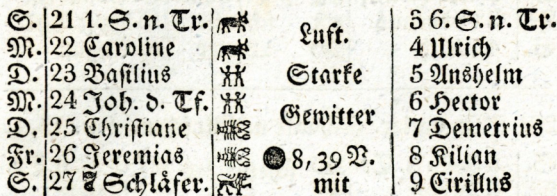 S. 21 1. S. n. Tr. Luft. 3 6. S. n. Tr.
M. 22 Caroline 4 Ulrich
D. 23 Basilius Starke 5 Anshelm
M. 24 Joh. d. Tf. Gewitter 6 Hector
D. 25 Christiane 7 Demetrius
Fr. 26 Jeremias 8, 39 V. 8 Kilian
S. 27 7 Schläfer. mit 9 Cirillus